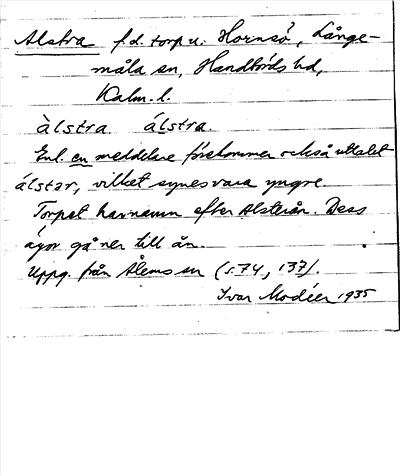 Alstra f.d. torp u. Hornsö, Långe-
måla sn, Handbörds hd,
Kalm. l.
àlstra álstra.
Enl. en meddelare förekommer också uttalet
álstar, vilket synes vara yngre.
Torpet har namn efter Alsterån. Dess
ägor gå ner till ån.
Uppg. från Ålems sn (s. 74, 137).
Ivar Modéer 1935